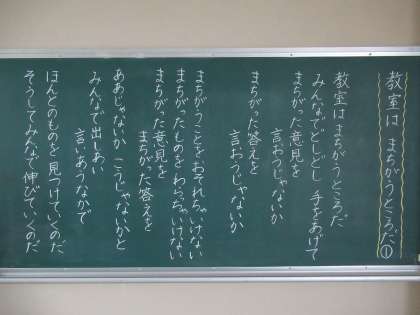 教室は まちがうところだ①
教室は まちがうところだ
みんなでどしどし 手をあげて
まちがった意見を
言おうじゃないか
まちがった答えを
言おうじゃないか
まちがうことをおそれちゃいけない
まちがったものをわらっちゃいけない
まちがった意見を
まちがった答えを
ああじゃないか こうじゃないかと
みんなで出しあい
言いあうなかで
ほんとのものを 見つけていくのだ
そうしてみんなで 伸びていくのだ